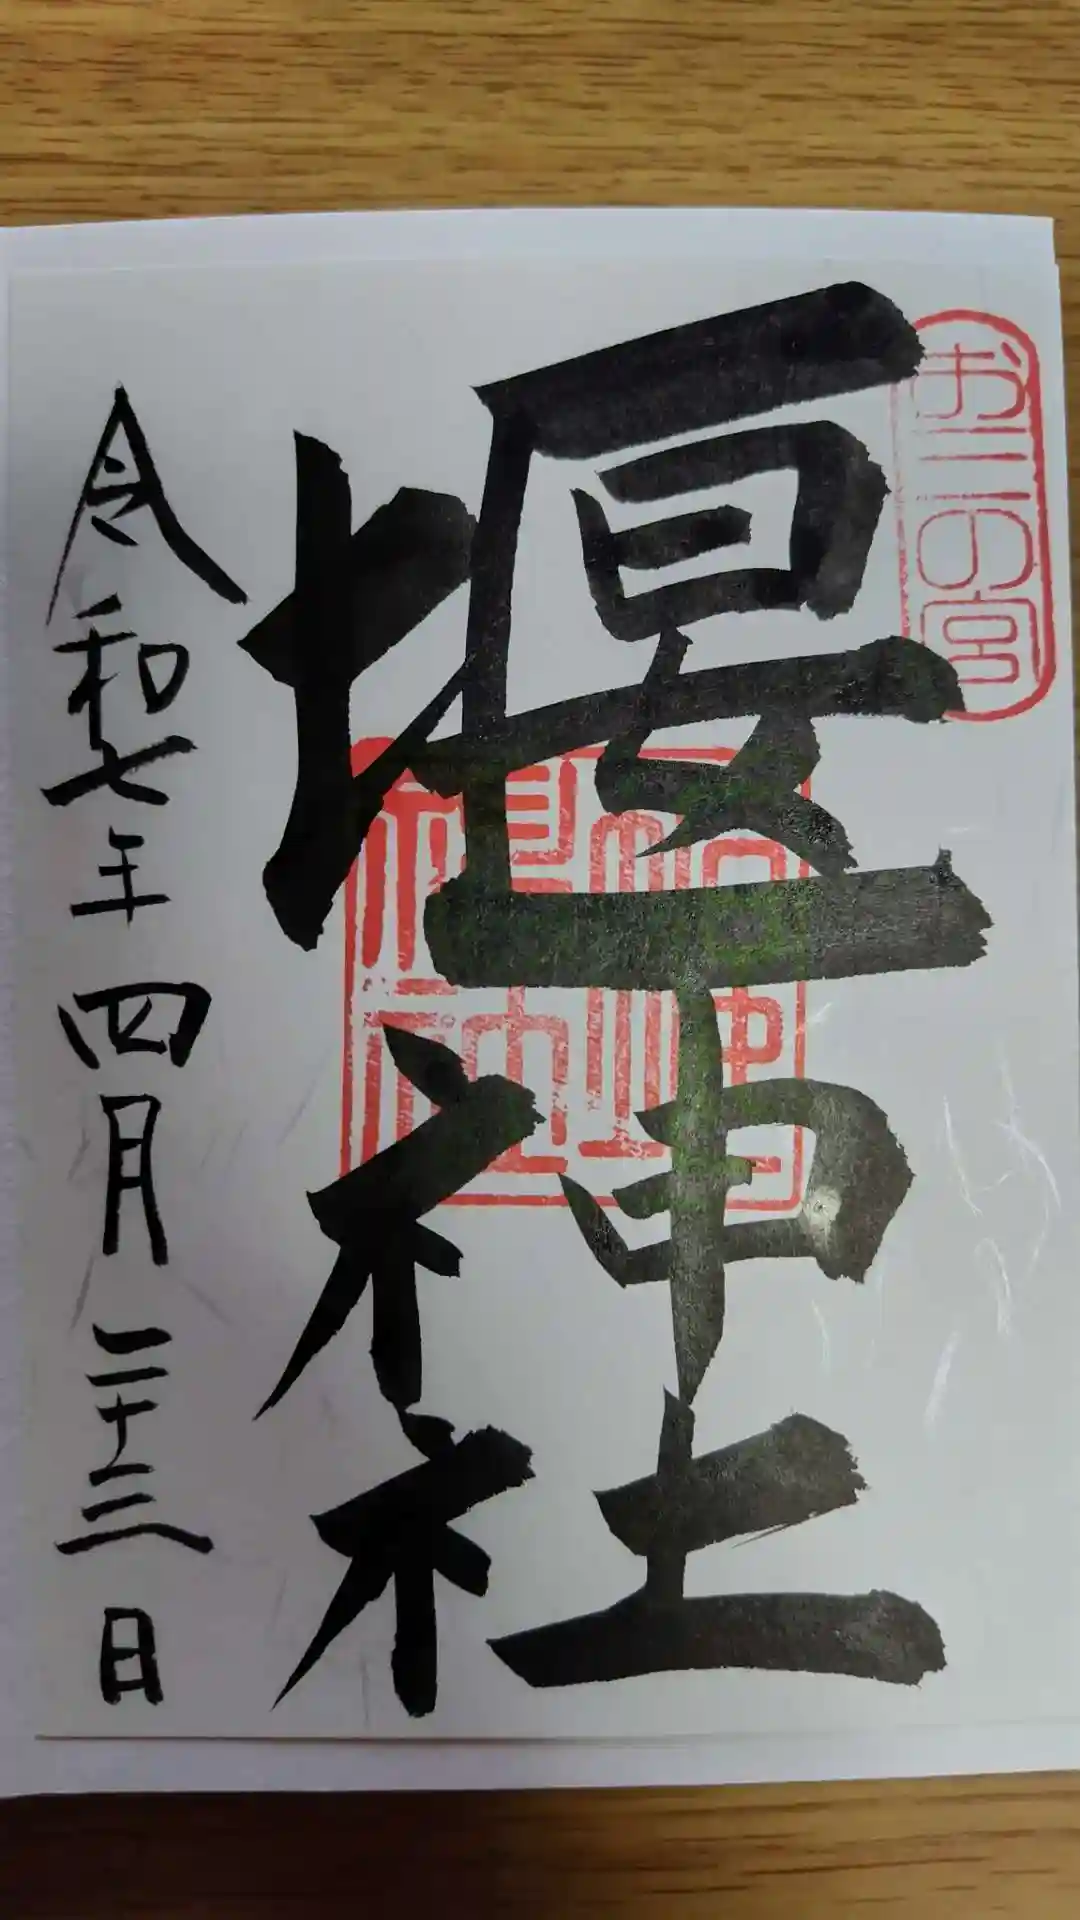 お三の宮
堰神社
令和七年四月二十三日